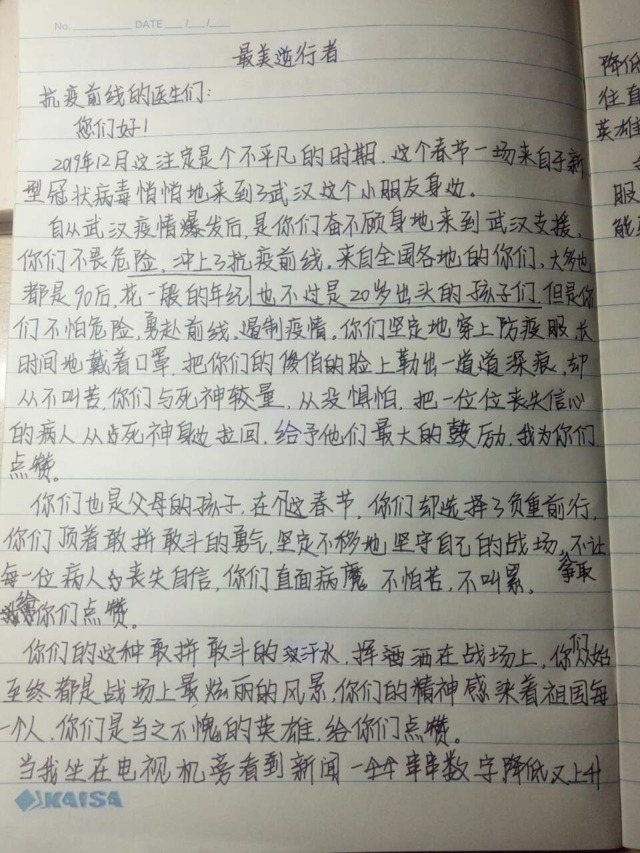 No. DATE / /
最美逆行者
抗疫前线的医生们:
您们好!
2019年12月这注定是个不平凡的时期,这个春节一场来自于新
型冠状病毒悄悄地来到了武汉这个小朋友身边。
自从武汉疫情爆发后,是你们奋不顾身地来到武汉支援,
你们不畏危险,冲上了抗疫前线。来自全国各地的你们,大多也
都是90后,花一般的年纪也不过是20岁出头的孩子们,但是你
们不怕危险,勇赴前线,遏制疫情。你们坚定地穿上防疫服,长
时间地戴着口罩,把你们的俊俏的脸上勒出一道道深痕,却
从不叫苦,你们与死神较量,从没惧怕,把一位位丧失信心
的病人从死神身边拉回,给予他们最大的鼓励,我为你们
点赞。
你们也是父母的孩子,在这春节,你们却选择了负重前行,
你们顶着敢拼敢斗的勇气,坚定不移地坚守自己的战场,不让
每一位病人丧失自信,你们直面病魔不怕苦,不叫累,争取
给你们点赞。
你们的这种敢拼敢斗的汗水,挥洒洒在战场上,你们从始
至终都是战场上最炫丽的风景,你们的精神感染着祖国每
一个人,你们是当之不愧的英雄,给你们点赞。
当我坐在电视机旁看到新闻一串串数字降低又上升
KAISA
降低
往直
英雄
服
能